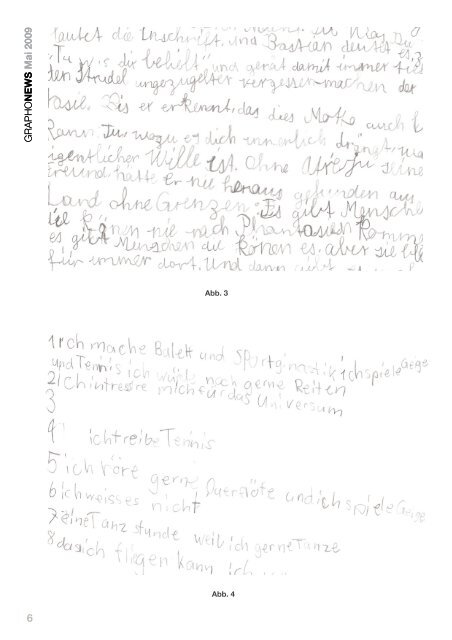 GRAPHONEWS Mai 2009
lautet die Inschrift. und Bastian deutet es,
"Tu w s dir beliebt" und gerät damit immer
den Strudel ungezugelter vergessen-machen der
asil. Bis er erkennt, das dies Motto auch
kann. Tu, wozu es dich innerlich drängt,
igentlicher Wille ist. Ohne Atreju seine
Freund hatte er nie heraus gefunden aus
Land ohne Grenzen. "Es gibt Mensche
die können nie nach Phantasien komm
es gibt Menschen die können es, aber sie
für immer dort. Und dann
Abb. 3
1 Ich mache Balett und Sportginastik ich spiele Geige
und Tennis ich noch gerne Reiten
2 ich intresire mich für das Universum
3
4 ich treibe Tennis
5 ich höre gerne Querflöte und ich spiele Geige
6 ich weiss es nicht
7 eine Tanz stunde weil ich gerne Tanze
8 das ich fliegen kann ich
Abb. 4
6